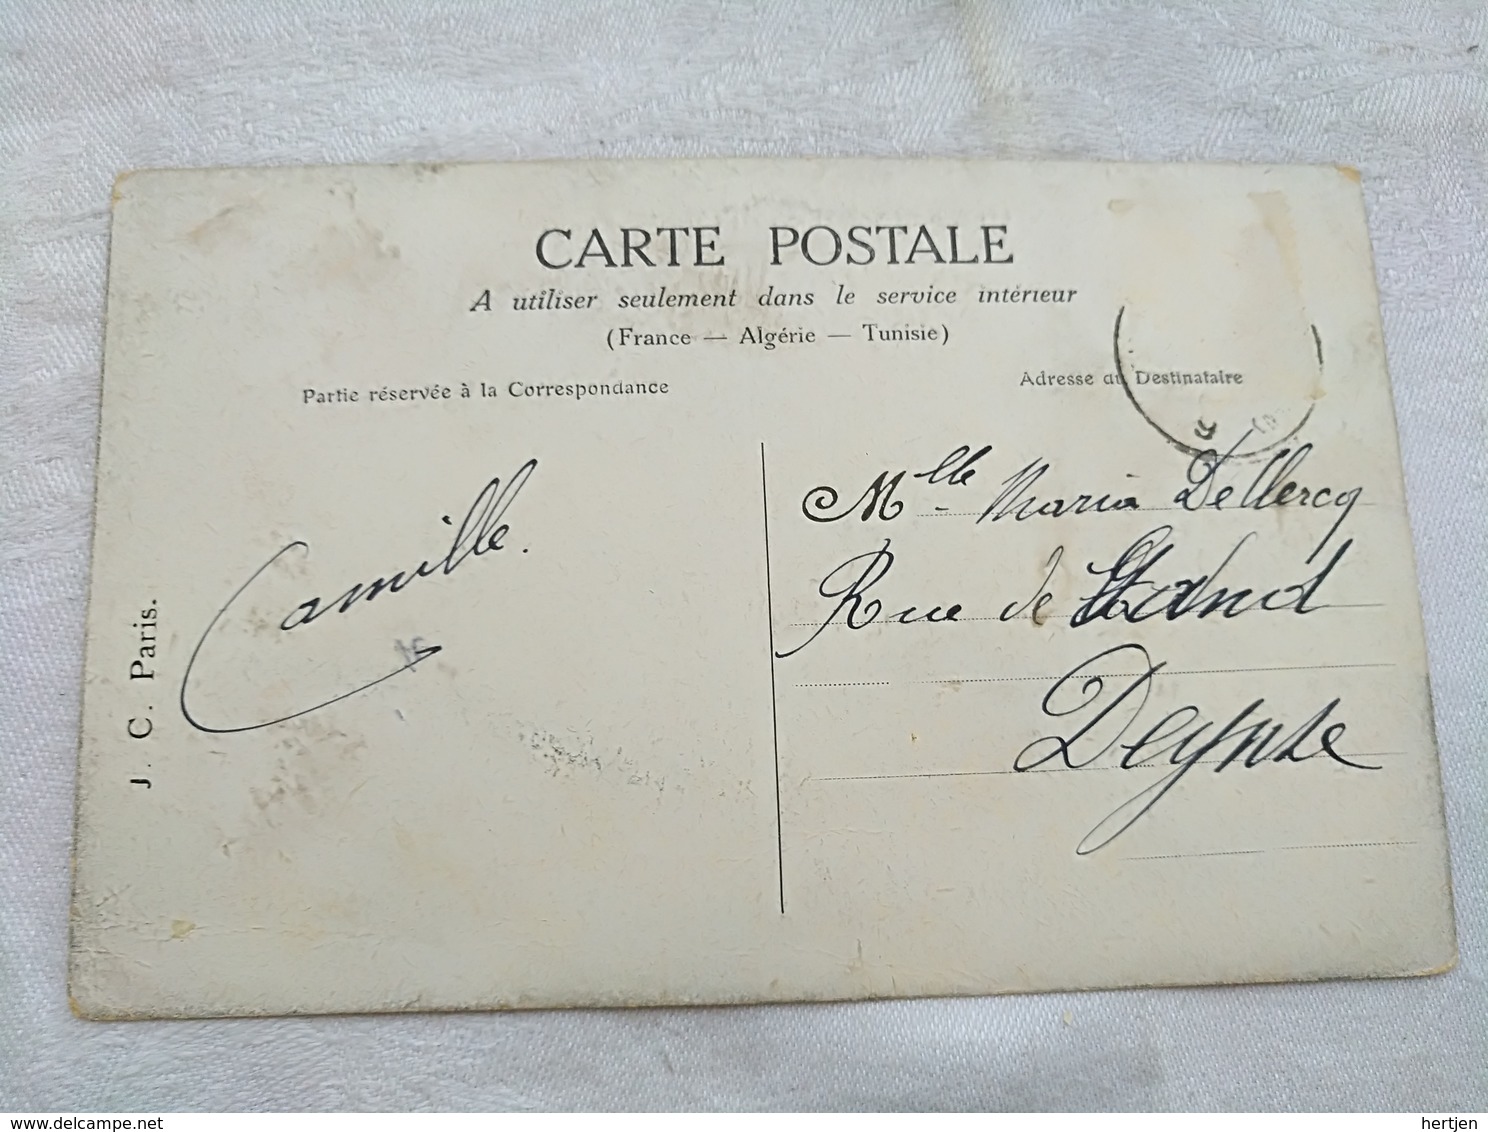 CARTE POSTALE
A utiliser seulement dans le service intérieur
(France — Algérie — Tunisie)
Partie réservée à la Correspondance
Adresse du Destinataire
Camille.
Mlle Maria De Clercq
Rue de Gand
Deynze
J. C. Paris.
www.delcampe.net
hertjen